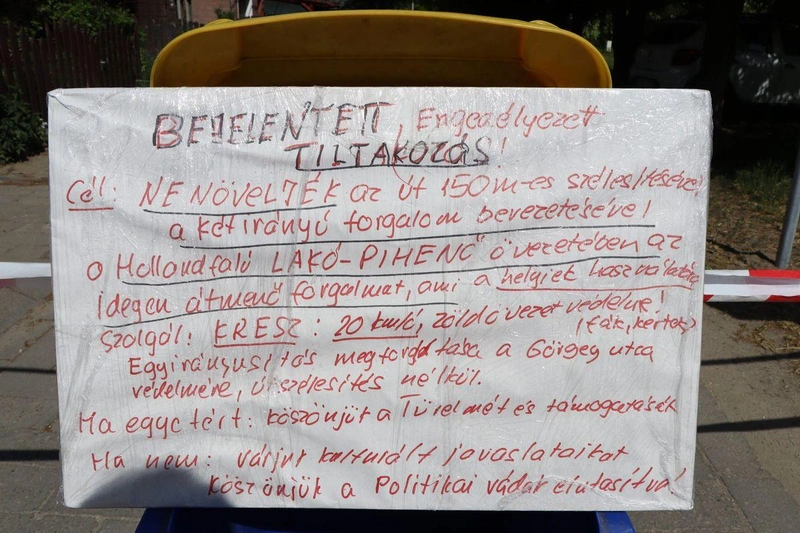 BEJELENTETT, Engedélyezett
TILTAKOZÁS!
Cél: NE NÖVELJÉK az út 150m-es szélesítésével
a kétirányú forgalom bevezetésével
a Hollandfalú LAKÓ-PIHENŐ övezetében az
Idegen átmenő forgalmat, ami a helyiek használatára
szolgál! KRESZ: 20 km/ó, zöldövezet védelme!
(fák, kertek)
Egyirányusitás megfordítása a Görgey utca
védelmére, út szélesítés nélkül.
Ha egyetért: köszönjük a Türelmét és támogatását
Ha nem: várjuk kulturált javaslataikat
köszönjük a Politikai vádak elutasítva!